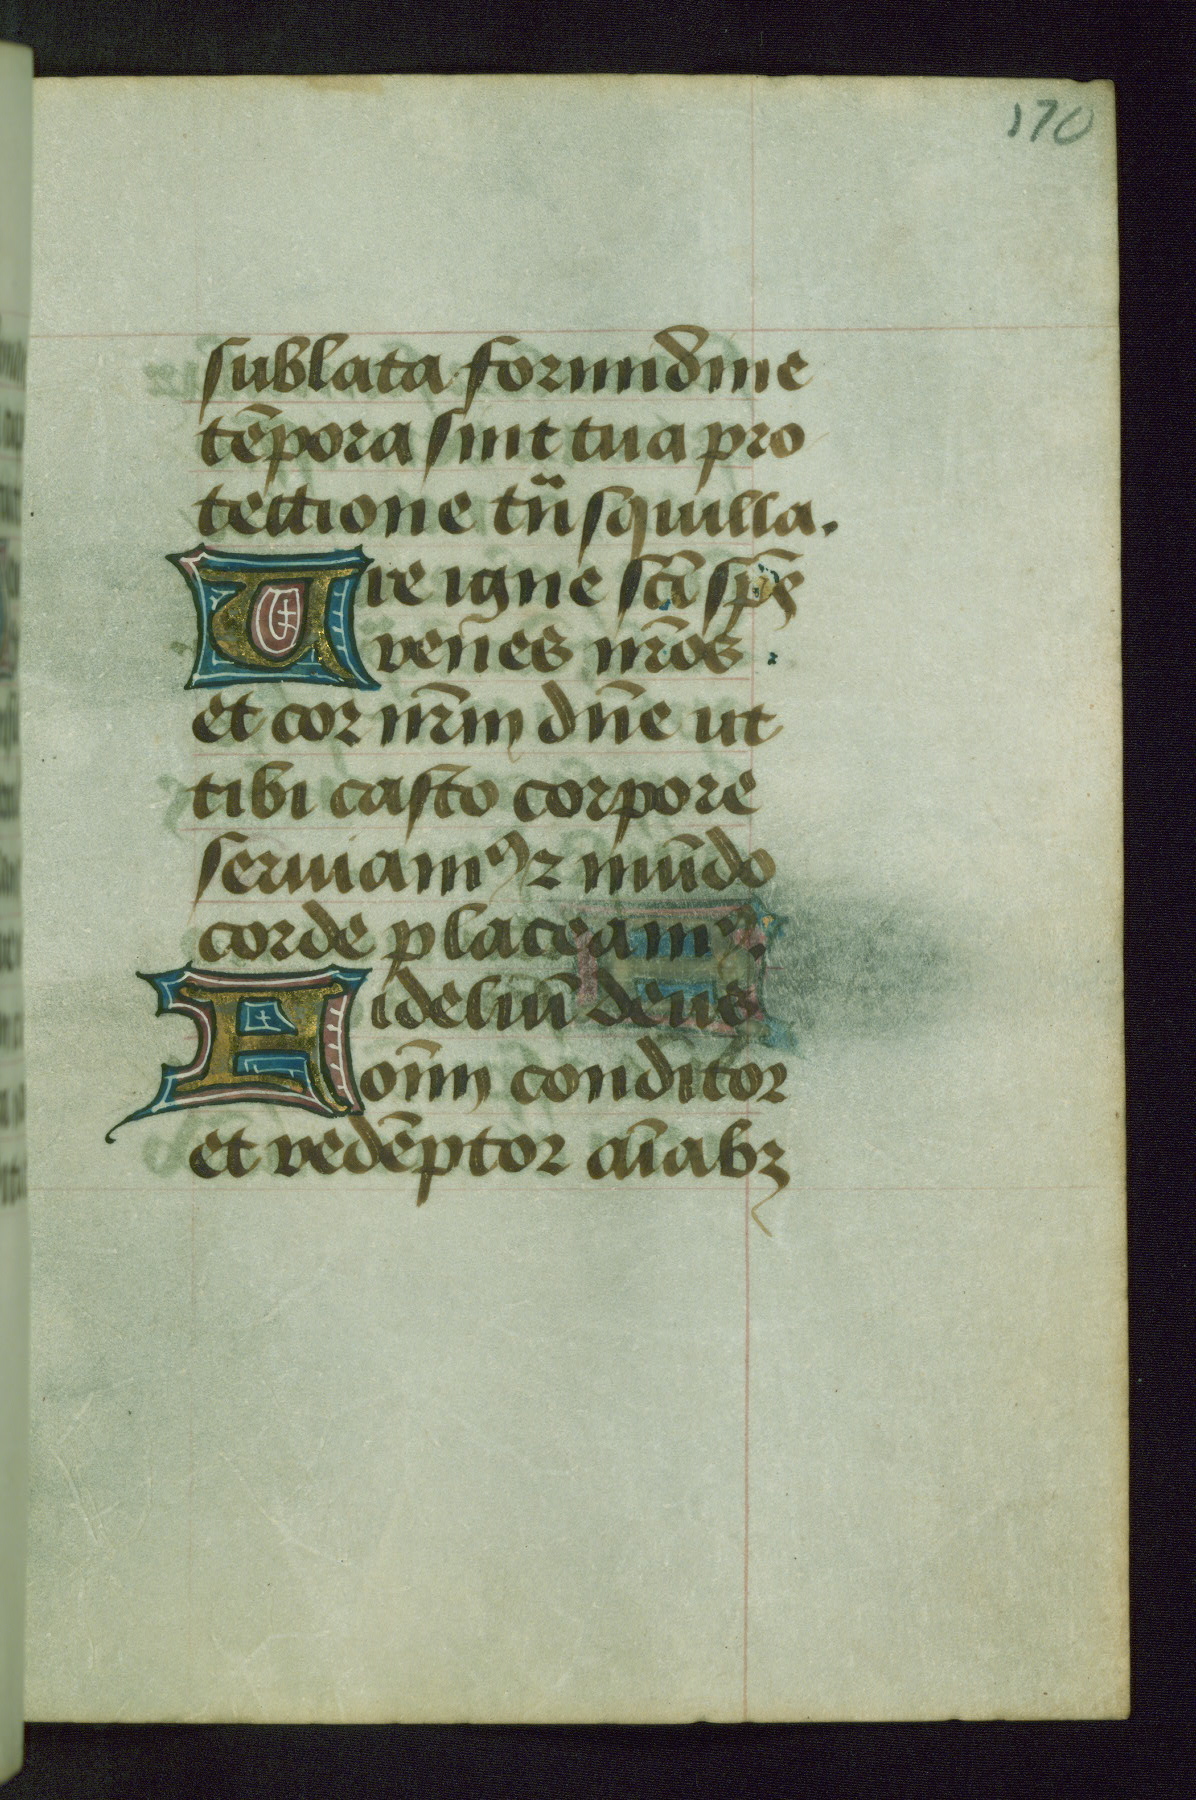 170
sublata formidine
tēpora sint tua pro
tectione trāsquilla.
Ure igne scī spūs
renēs nrōs
et cor nrm̄ dn̄e ut
tibi casto corpore
seruiamꝰ ⁊ mūdo
corde placeamꝰ.
Fideliū deus
oīm conditor
et redēptor aīabꝫ